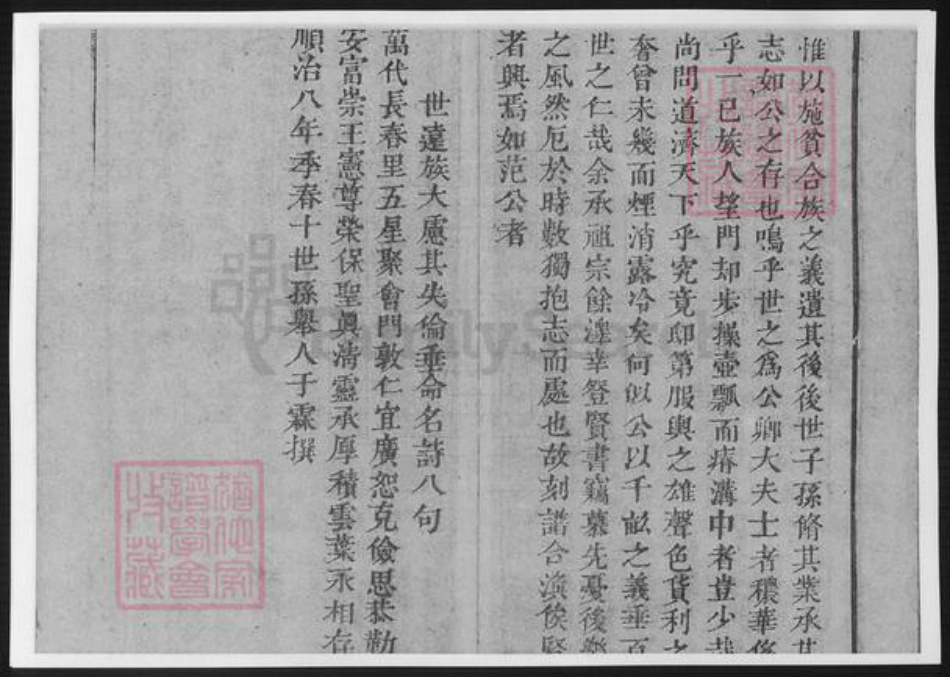 惟以施貧合族之義遺其後後世子孫脩其業承其
志如公之存也嗚乎世之爲公卿大夫士者穠華侈
乎一己族人望門却步操壺瓢而瘠溝中者豈少哉
尚問道濟天下乎究竟邸第服輿之雄聲色貨利之
奢曾未幾而煙消露冷矣何似公以千畝之義垂百
世之仁哉余承祖宗餘澤幸登賢書竊慕先憂後樂
之風然厄於時數獨抱志而處也故刻譜合渙俟賢
者興焉如范公者
世遠族大慮其失倫垂命名詩八句
萬代長春里五星聚會門敦仁宜廣恕克儉思恭勤
安富崇王憲尊榮保聖眞淸靈承厚積雲葉永相存
順治八年季春十世孫舉人于霖撰
FamilySearch
譜學會
收藏